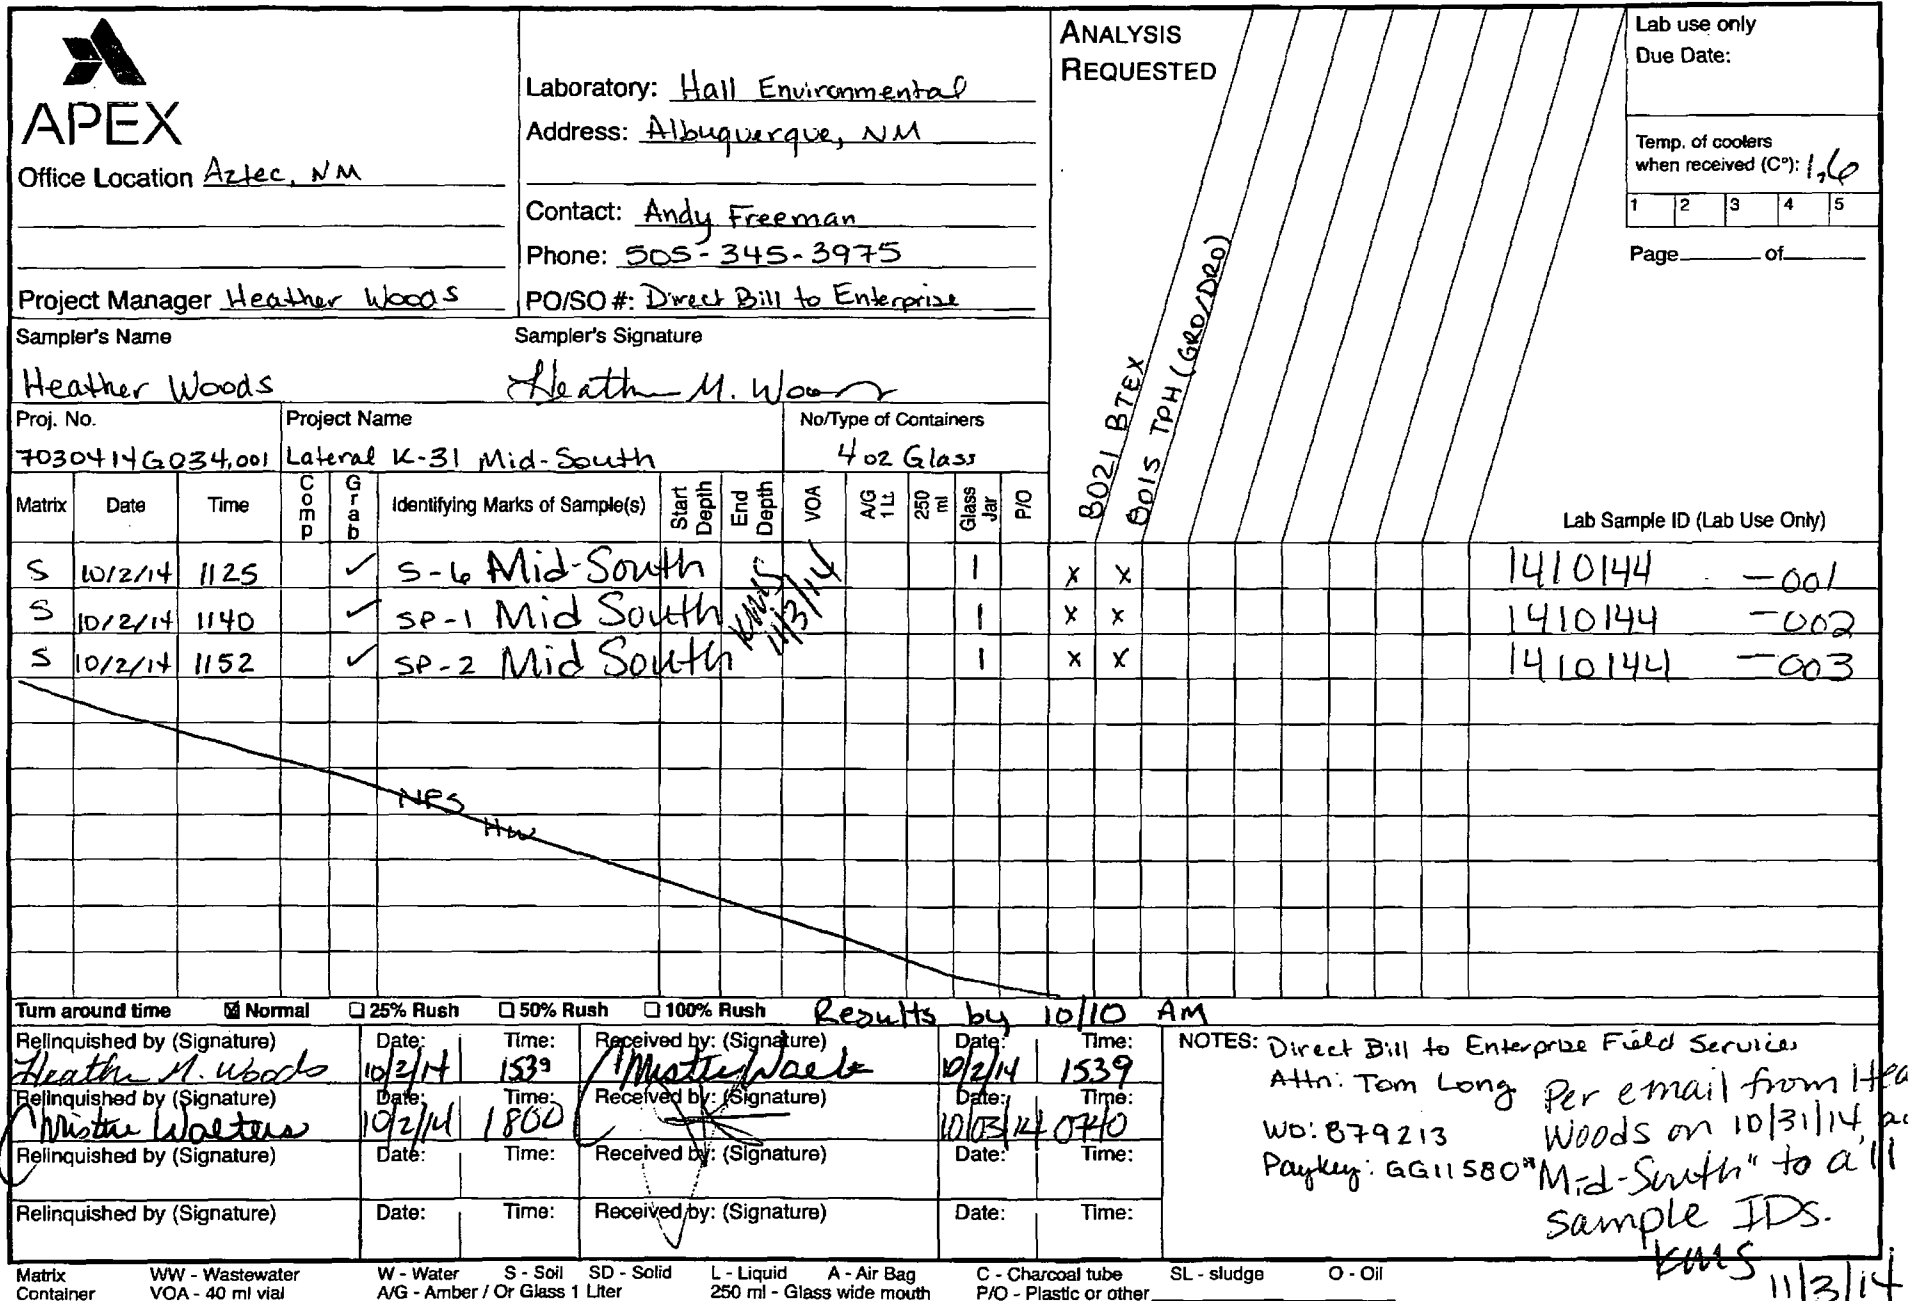 APEX
Office Location Aztec, NM
Project Manager Heather Woods
Laboratory: Hall Environmental
Address: Albuquerque, NM
Contact: Andy Freeman
Phone: 505-345-3975
PO/SO #: Direct Bill to Enterprise
ANALYSIS
REQUESTED
8021 BTEX
8015 TPH (GRO/DRO)
Lab use only
Due Date:
Temp. of coolers
when received (C°): 1.6
1 2 3 4 5
Page of
Sampler's Name Sampler's Signature
Heather Woods Heather M. Woods
Proj. No. Project Name No/Type of Containers
7030414G034.001 Lateral K-31 Mid-South 4 oz Glass
Matrix Date Time Comp Grab Identifying Marks of Sample(s) Start Depth End Depth VOA A/G 1 Lt. 250 ml Glass Jar P/O Lab Sample ID (Lab Use Only)
S 10/2/14 1125 ✓ S-6 Mid-South 1 X X 1410144 -001
S 10/2/14 1140 ✓ SP-1 Mid South 1 X X 1410144 -002
S 10/2/14 1152 ✓ SP-2 Mid South 1 X X 1410144 -003
KMS
11/3/14
NFS
HW
Turn around time ☒ Normal ☐ 25% Rush ☐ 50% Rush ☐ 100% Rush Results by 10/10 AM
Relinquished by (Signature) Date: Time: Received by: (Signature) Date: Time:
Heather M. Woods 10/2/14 1539 10/2/14 1539
Relinquished by (Signature) Date: Time: Received by: (Signature) Date: Time:
Christine Walters 10/2/14 1800 10/03/14 0740
Relinquished by (Signature) Date: Time: Received by: (Signature) Date: Time:
Relinquished by (Signature) Date: Time: Received by: (Signature) Date: Time:
NOTES: Direct Bill to Enterprise Field Services
Attn: Tom Long
WO: 879213
Paykey: GG11580
Per email from Hea
Woods on 10/31/14, ad
"Mid-South" to all
sample IDs.
KMS
11/3/14
Matrix WW - Wastewater W - Water S - Soil SD - Solid L - Liquid A - Air Bag C - Charcoal tube SL - sludge O - Oil
Container VOA - 40 ml vial A/G - Amber / Or Glass 1 Liter 250 ml - Glass wide mouth P/O - Plastic or other